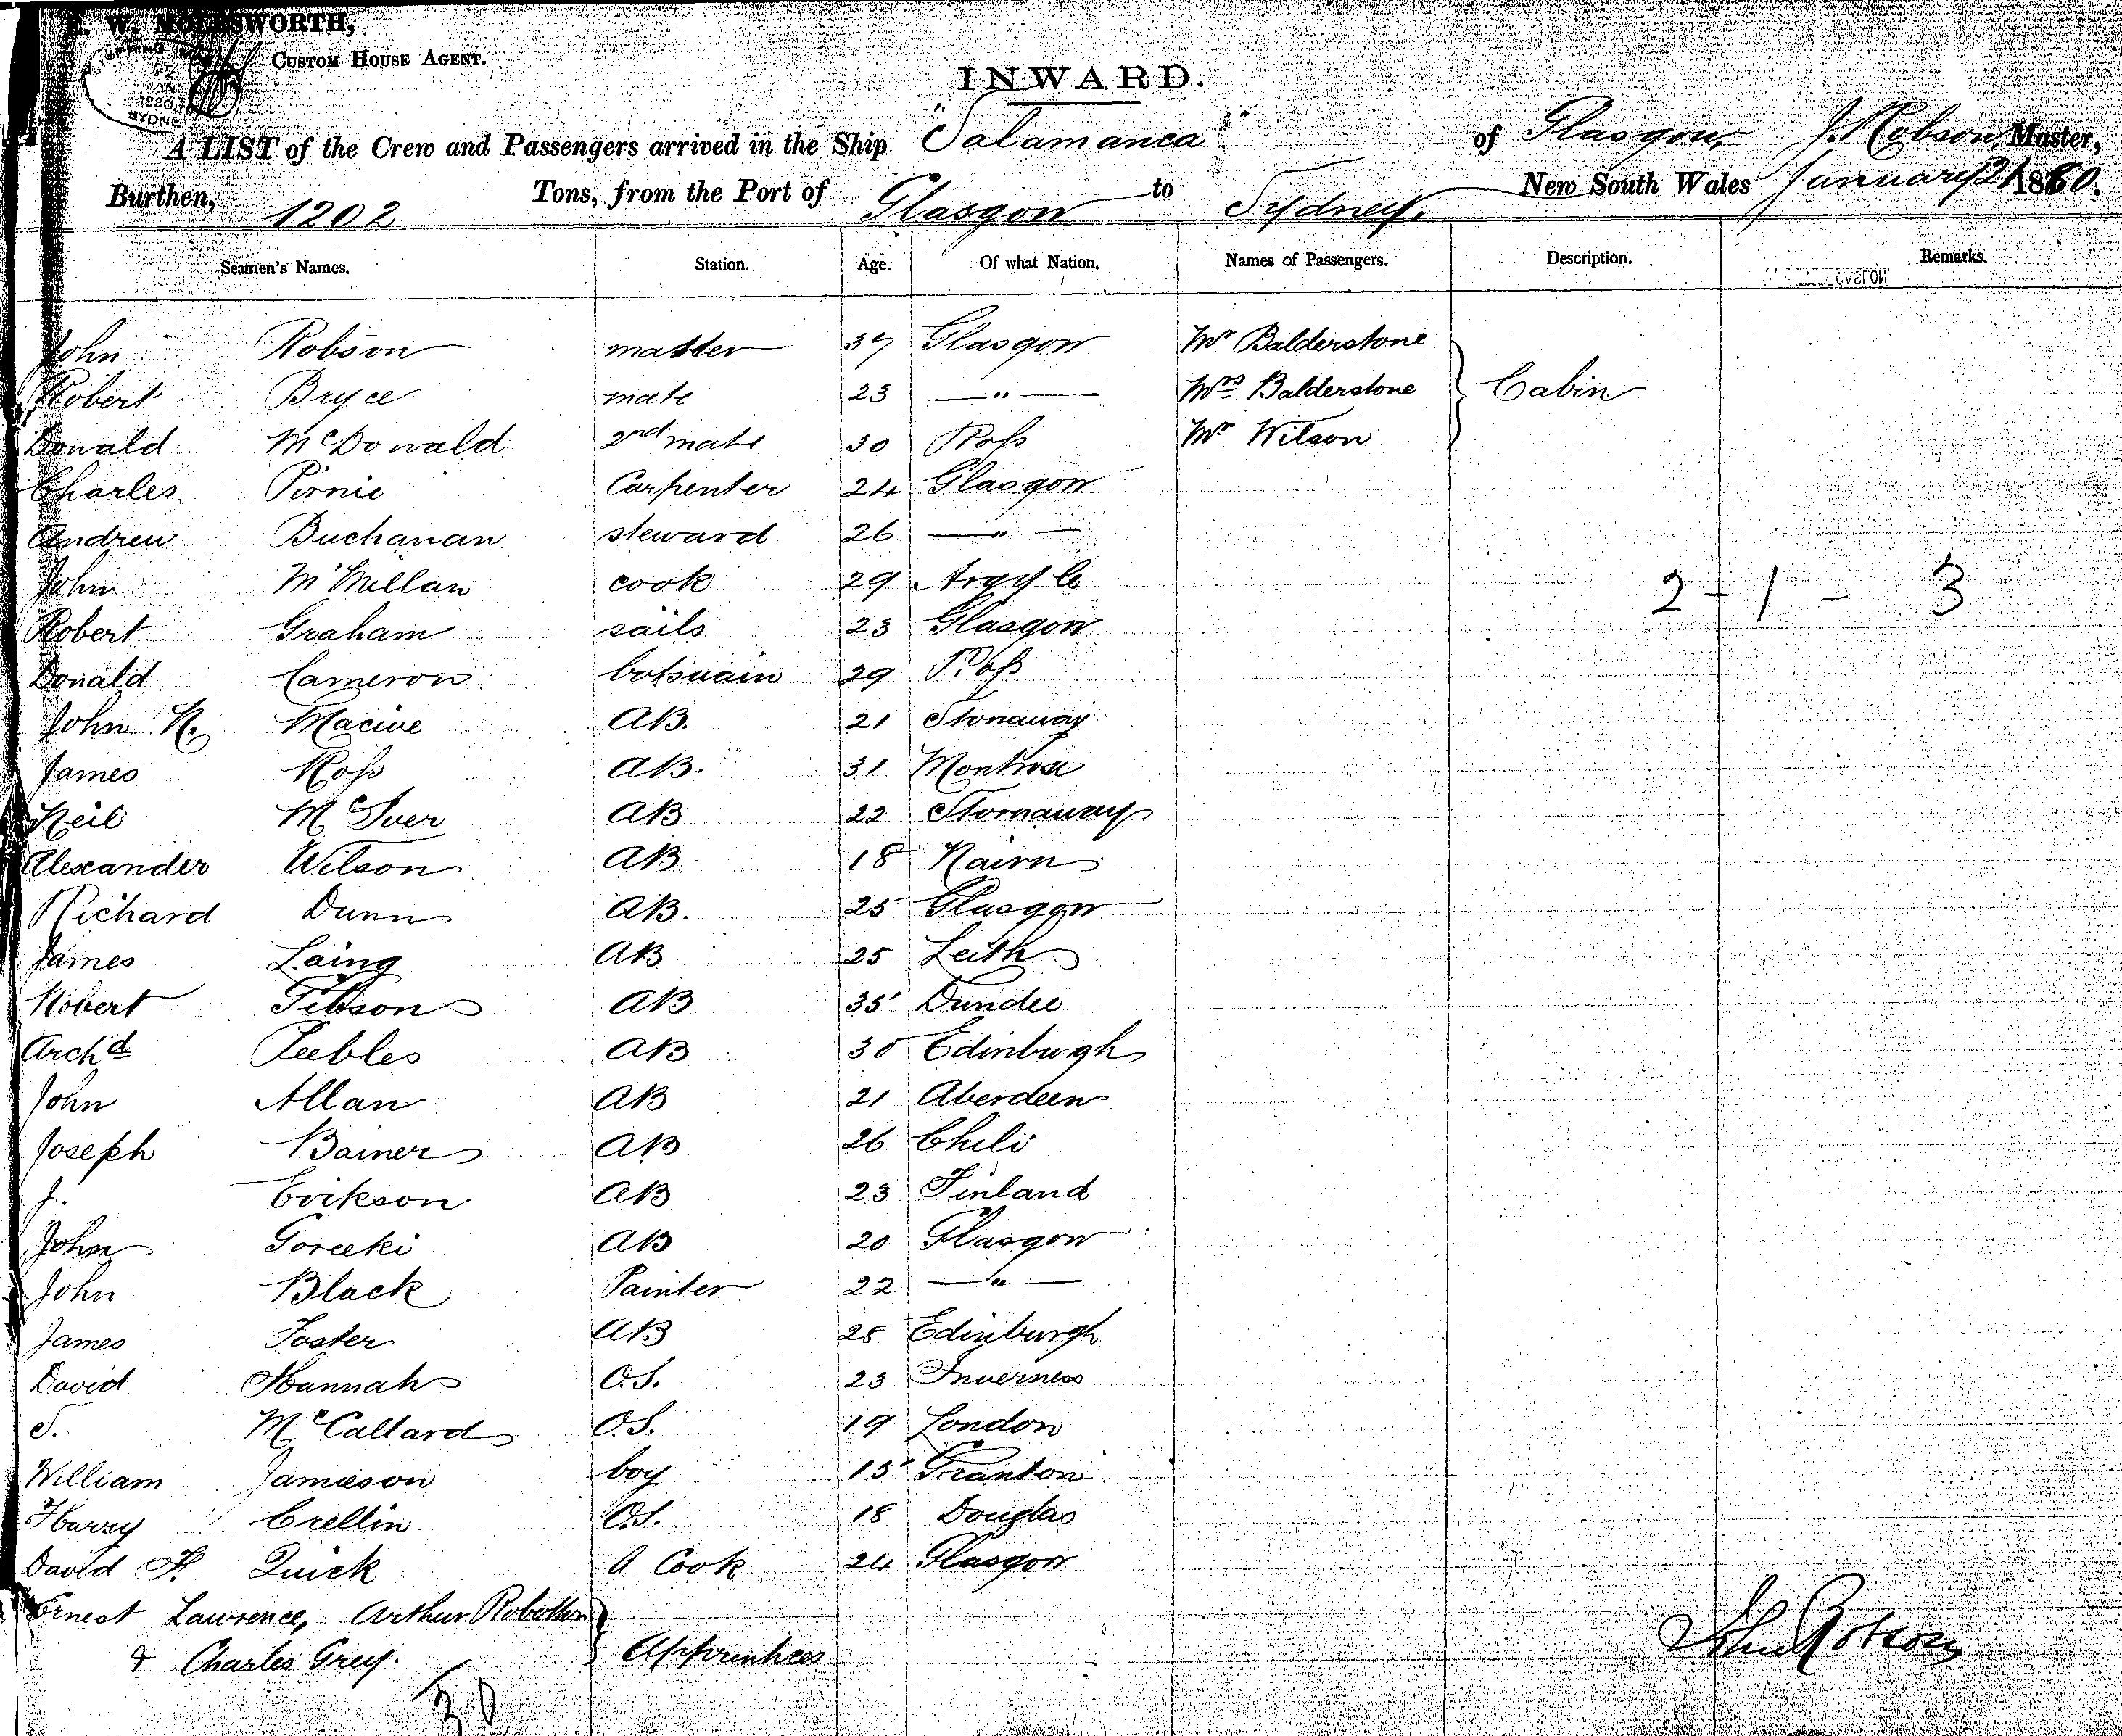 E. W. MOLESWORTH,
CUSTOM HOUSE AGENT.
1880
SYDNEY
INWARD.
A LIST of the Crew and Passengers arrived in the Ship "Salamanca" of Glasgow, J. Robson, Master,
Burthen, 1202 Tons, from the Port of Glasgow to Sydney, New South Wales January 21 1880.
Seamen's Names. Station. Age. Of what Nation. Names of Passengers. Description. Remarks.
John Robson master 37 Glasgow Mr Balderstone
Robert Bryce mate 23 —"— Mrs Balderstone Cabin
Donald McDonald 2nd mate 30 Ross Mr Wilson
Charles Pirnie Carpenter 24 Glasgow
Andrew Buchanan steward 26 —"—
John M'Millan cook 29 Argyle 2 - 1 - 3
Robert Graham sails 23 Glasgow
Donald Cameron botswain 29 Ross
John N. Macive AB. 21 Stonaway
James Ross AB. 31 Montrose
Neil McIver AB 22 Stornaway
Alexander Wilson AB 18 Nairn
Richard Dunn AB. 25 Glasgow
James Laing AB 25 Leith
Robert Gibson AB 35 Dundee
Archd Peebles AB 30 Edinburgh
John Allan AB 21 Aberdeen
Joseph Bainer AB 26 Chili
J. Erikson AB 23 Finland
John Goreeki AB 20 Glasgow
John Black Painter 22 —"—
James Foster AB 28 Edinburgh
David Hannah O.S. 23 Inverness
S. McCallard O.S. 19 London
William Jamieson boy 15 Granton
Harry Crellin O.S. 18 Douglas
David F. Quick A Cook 24 Glasgow
Ernest Lawrence, Arthur
& Charles Grey. Apprentices
John Robson
30